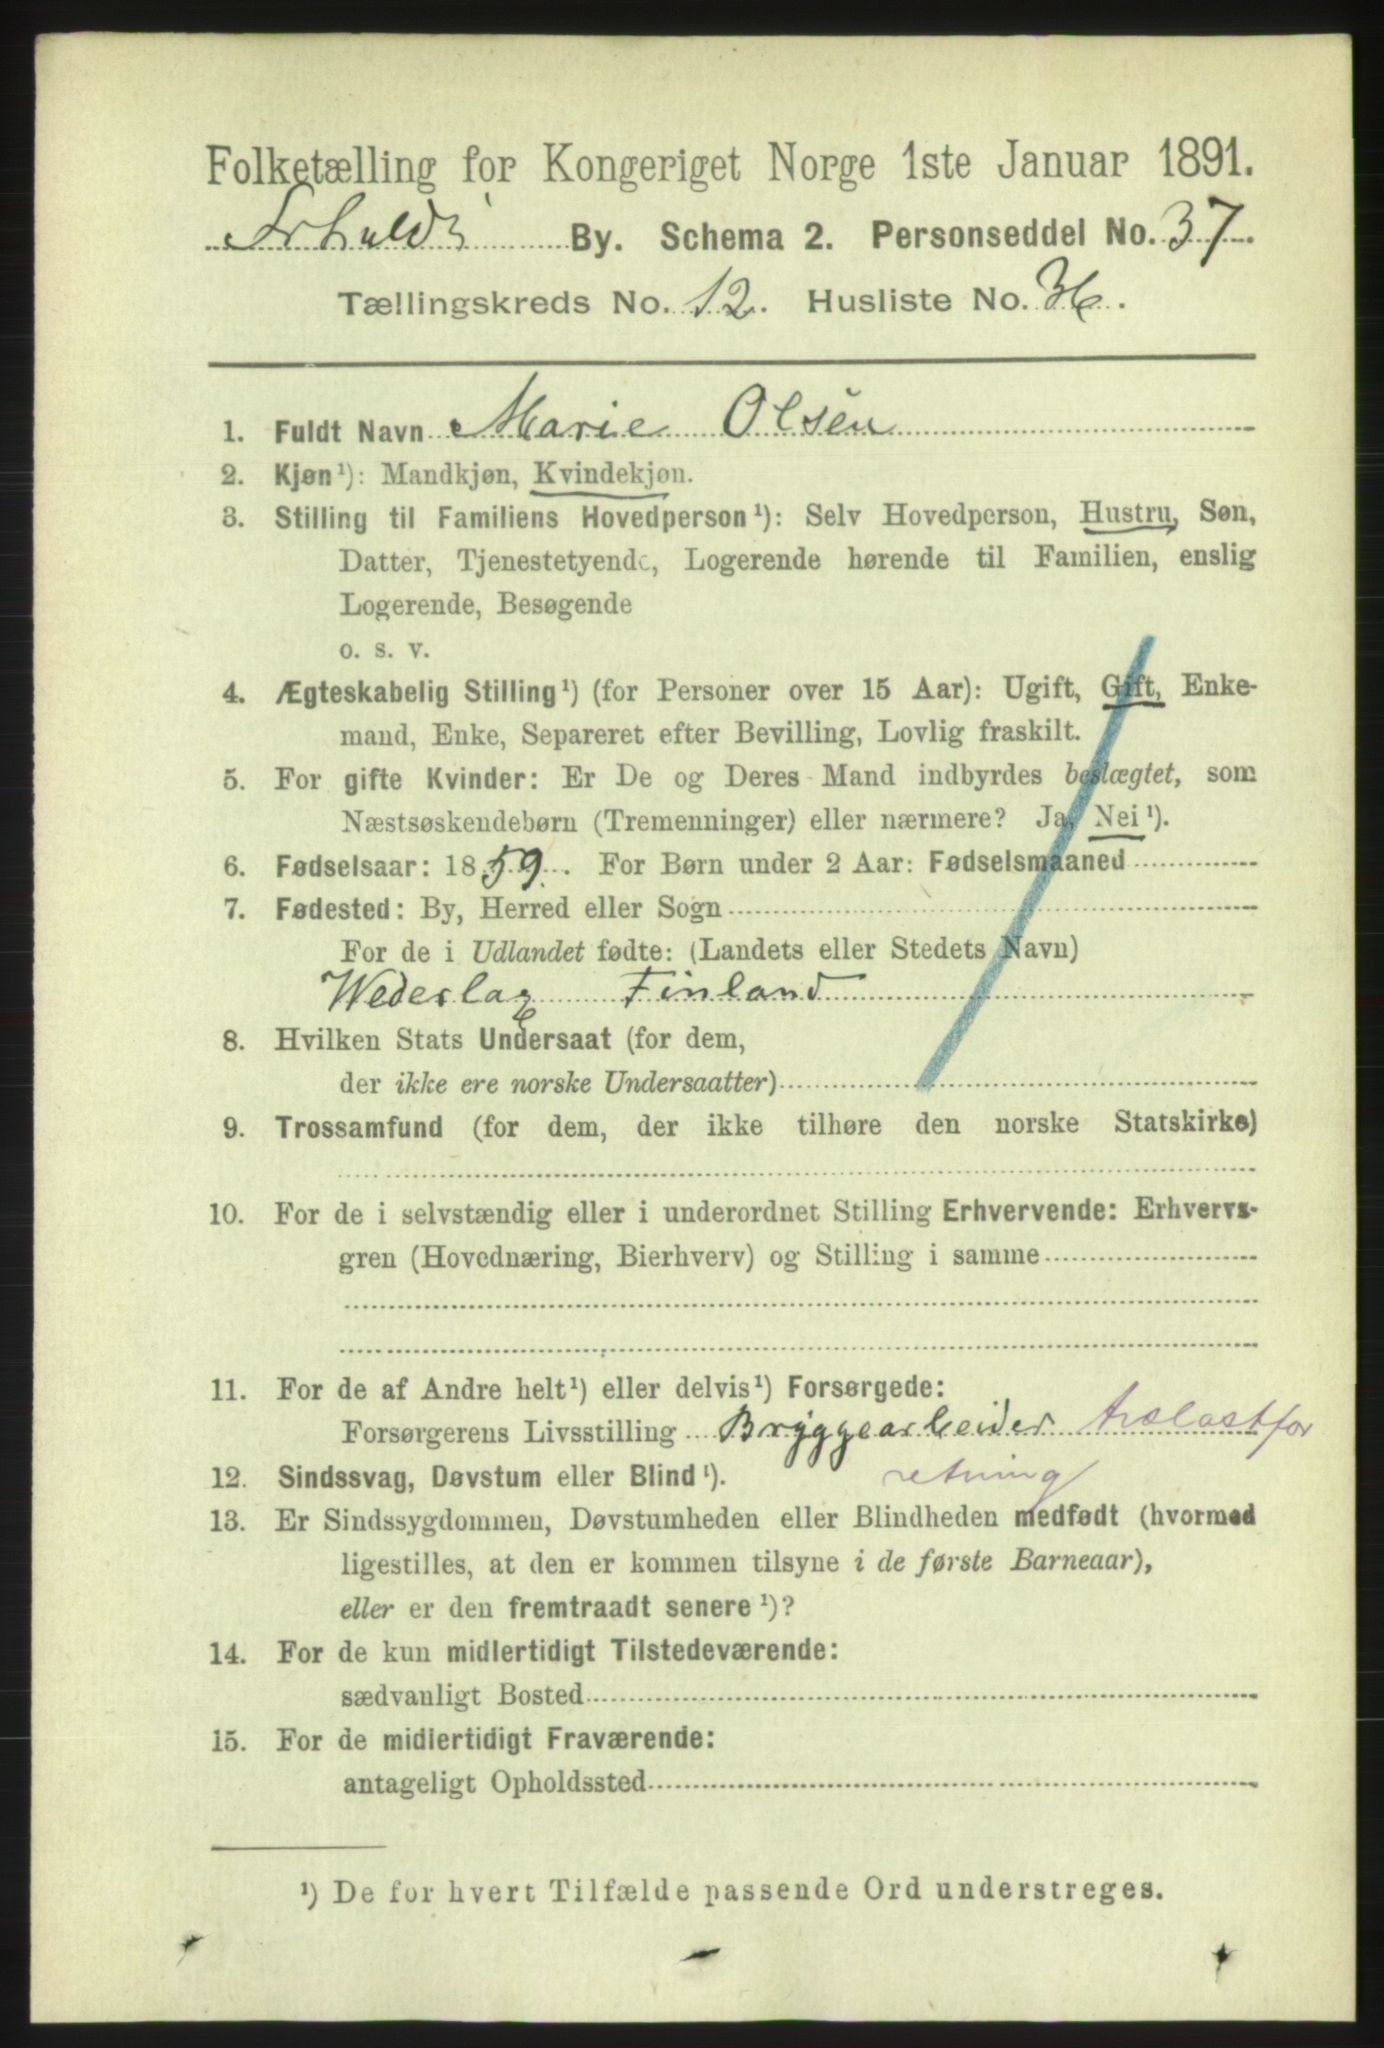 Folketælling for Kongeriget Norge 1ste Januar 1891.
Frhald By. Schema 2. Personseddel No. 37.
Tællingskreds No. 12. Husliste No. 36.
1. Fuldt Navn Marie Olsen
2. Kjøn¹): Mandkjøn, Kvindekjøn.
3. Stilling til Familiens Hovedperson¹): Selv Hovedperson, Hustru, Søn,
Datter, Tjenestetyende, Logerende hørende til Familien, enslig
Logerende, Besøgende
o. s. v.
4. Ægteskabelig Stilling¹) (for Personer over 15 Aar): Ugift, Gift, Enke-
mand, Enke, Separeret efter Bevilling, Lovlig fraskilt.
5. For gifte Kvinder: Er De og Deres Mand indbyrdes beslægtet, som
Næstsøskendebørn (Tremenninger) eller nærmere? Ja, Nei¹).
6. Fødselsaar: 1859. For Børn under 2 Aar: Fødselsmaaned
7. Fødested: By, Herred eller Sogn
For de i Udlandet fødte: (Landets eller Stedets Navn)
Wederlag Finland
8. Hvilken Stats Undersaat (for dem,
der ikke ere norske Undersaatter)
9. Trossamfund (for dem, der ikke tilhøre den norske Statskirke)
10. For de i selvstændig eller i underordnet Stilling Erhvervende: Erhvervs-
gren (Hovednæring, Bierhverv) og Stilling i samme
11. For de af Andre helt¹) eller delvis¹) Forsørgede:
Forsørgerens Livsstilling Bryggearbeider trælastfor
retning
12. Sindssvag, Døvstum eller Blind¹).
13. Er Sindssygdommen, Døvstumheden eller Blindheden medfødt (hvormed
ligestilles, at den er kommen tilsyne i de første Barneaar),
eller er den fremtraadt senere¹)?
14. For de kun midlertidigt Tilstedeværende:
sædvanligt Bosted
15. For de midlertidigt Fraværende:
antageligt Opholdssted
¹) De for hvert Tilfælde passende Ord understreges.